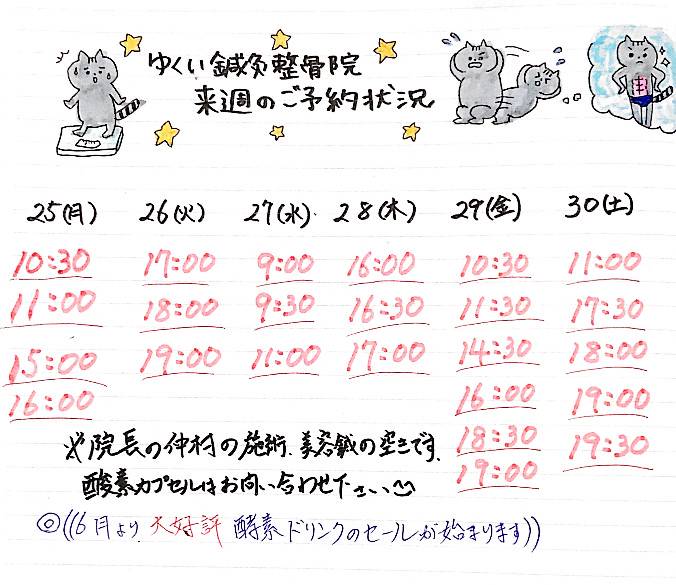 ゆくい鍼灸整骨院
来週のご予約状況
25(月) 26(火) 27(水) 28(木) 29(金) 30(土)
10:30 17:00 9:00 16:00 10:30 11:00
11:00 18:00 9:30 16:30 11:30 17:30
15:00 19:00 11:00 17:00 14:30 18:00
16:00 16:00 19:00
18:30 19:30
19:00
※院長の仲村の施術、美容鍼の空きです。
酸素カプセルはお問い合わせ下さい
◎((6月より 大好評 酵素ドリンクのセールが始まります))